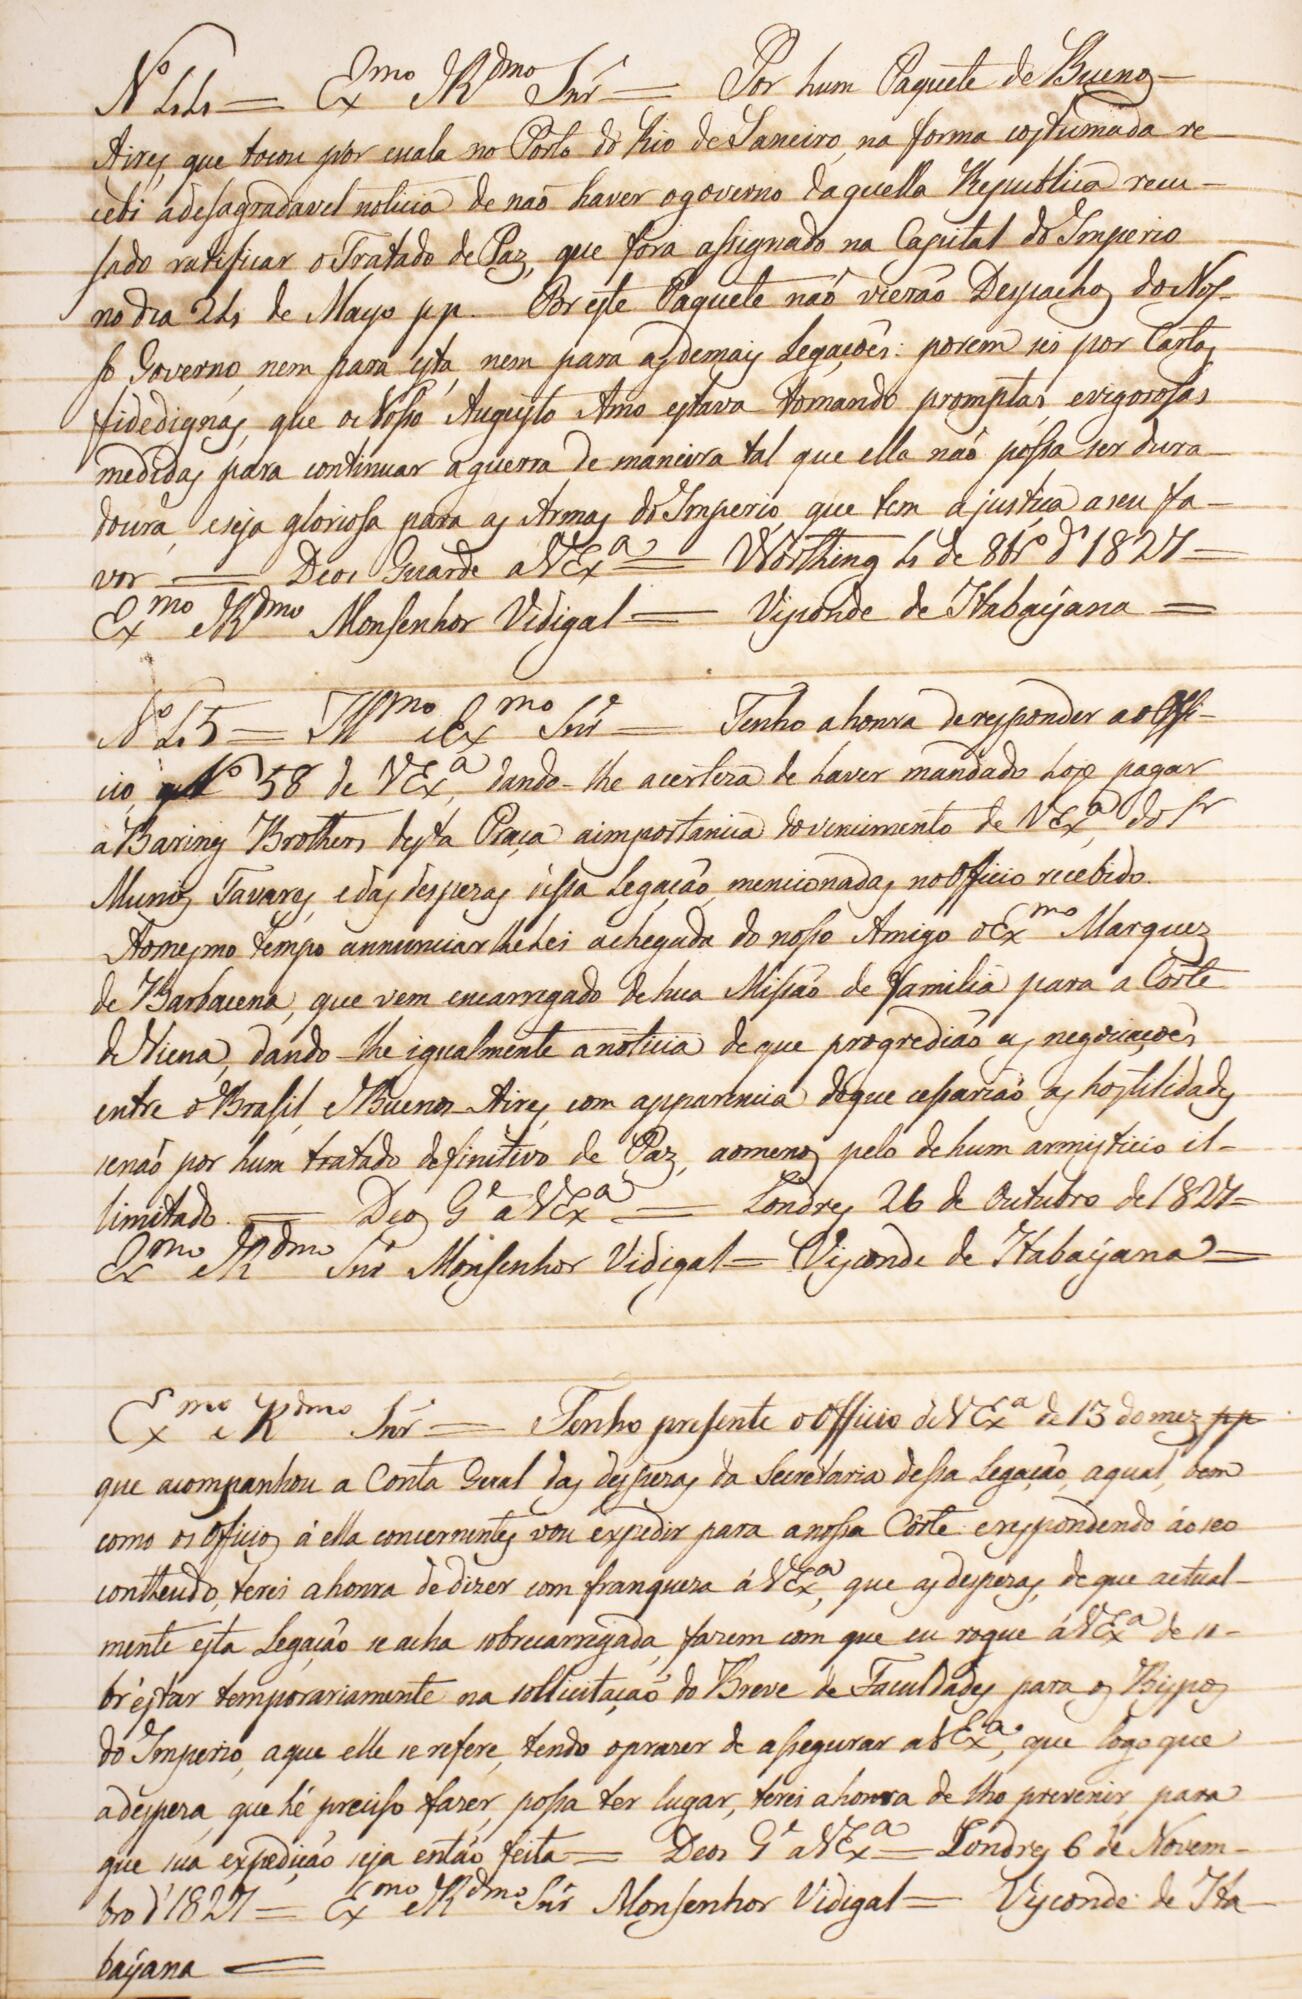 Nº 44 = Exmo e Rdmo Snr = Por hum Paquete de Buenos
Aires, que tocou por escala no Porto do Rio de Janeiro, na forma costumada re-
cebi a desagradavel noticia de não haver o governo daquella Republica recu-
sado ratificar o Tratado de Paz, que fora assignado na Capital do Imperio
no dia 24 de Mayo pp. Por este Paquete não vierão Despachos do Nos-
so Governo, nem para esta, nem para as demais Legações: porem sei por Cartas
fidedignas, que o Nosso Augusto Amo estava tomando promptas e vigorosas
medidas para continuar a guerra de maneira tal que ella não possa ser dura-
doura, e seja gloriosa para as Armas do Imperio, que tem a justiça a seu fa-
vor = Deos Guarde a VExª = Worthing 4 de 8brº d'1827 =
Exmo e Rdmo Monsenhor Vidigal = Visconde de Itabayana =
Nº 45 = Illmo e Exmo Snr = Tenho a honra de responder ao Offi-
cio Nº 58 de VExª, dando-lhe a certeza de haver mandado hoje pagar
a Baring Brothers desta Praça a importancia do vencimento de VExª, do Sr
Muniz Tavares, e das despezas dessa Legação, mencionadas no Officio recebido.
Ao mesmo tempo annunciar lhe hei a chegada do nosso Amigo o Exmo Marquez
de Barbacena, que vem encarregado de hua Missão de familia para a Corte
de Viena, dando-lhe igualmente a noticia de que progredião as negociações
entre o Brasil, e Buenos-Aires, com apparencia de que cessarião as hostilidades
senão por hum tratado definitivo de Paz, ao menos pelo de hum armisticio il-
limitado. = Deos Ge a VExª = Londres 26 de Outubro de 1827 =
Exmo e Rdmo Snr Monsenhor Vidigal = Visconde de Itabayana =
Exmo e Rdmo Snr = Tenho presente o Officio de VExª de 13 do mez pp
que acompanhou a Conta Geral das despezas da Secretaria dessa Legação, a qual, bem
como os Officios á ella concernentes vou expedir para a nossa Côrte: e respondendo áo seo
contheudo, terei a honra de dizer com franqueza á VExª, que as despezas, de que actual-
mente esta Legação se acha sobrecarregada, fazem com que eu rogue á VExª de so-
br'estar temporariamente na sollicitação do Breve de Faculdades para os Bispos
do Imperio, a que elle se refere, tendo o prazer de assegurar a VExª, que logo que
a despeza, que hé preciso fazer, possa ter lugar, terei a honra de lho prevenir, para
que sua expedição seja então feita = Deos Ge a VExª = Londres 6 de Novem-
bro d'1827 = Exmo e Rdmo Snr Monsenhor Vidigal = Visconde de Ita-
bayana =